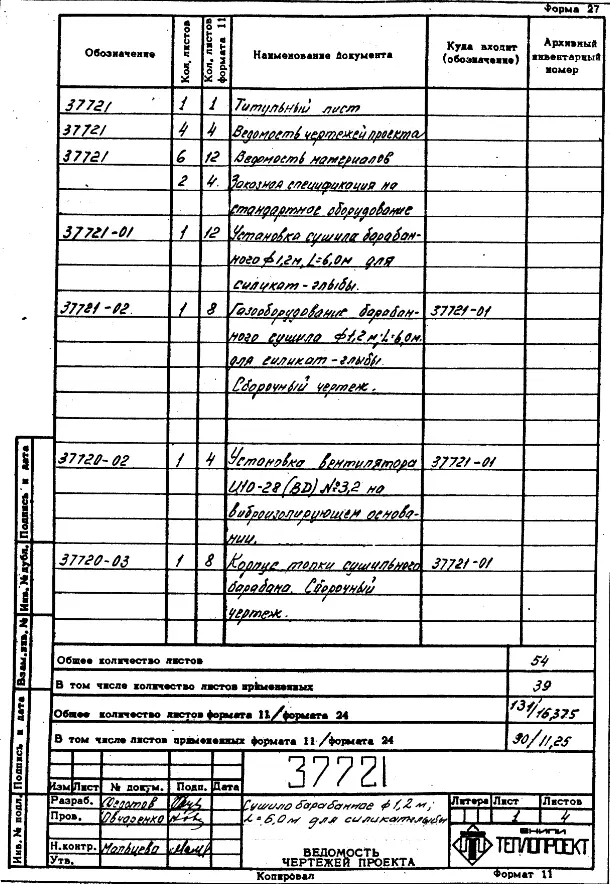 Форма 27
Обозначение
Кол. листов
Кол. листов формата 11
Наименование документа
Куда входит (обозначение)
Архивный инвентарный номер
37721 1 1 Титульный лист
37721 4 4 Ведомость чертежей проекта
37721 6 12 Ведомость материалов
2 4 Заказная спецификация на
стандартное оборудование
37721-01 1 12 Установка сушила барабан-
ного ф1,2м, L=6,0м для
силикат-глыбы.
37721-02 1 8 Газооборудование барабан- 37721-01
ного сушила ф1,2м; L=6,0м
для силикат-глыбы
Сборочный чертеж.
37720-02 1 4 Установка вентилятора 37721-01
Ц10-28 (ВД) №3,2 на
виброизолирующем основа-
нии.
37720-03 1 8 Корпус топки сушильного 37721-01
барабана. Сборочный
чертеж.
Общее количество листов 54
В том числе количество листов применённых 39
Общее количество листов формата 11/формата 24 131/16,375
В том числе листов применённых формата 11/формата 24 90/11,25
37721
Изм Лист № докум. Подп. Дата
Разраб.
Пров. Овчаренко
Н.контр. Мальцева
Утв.
Сушило барабанное ф1,2м;
L=6,0м для силикат-глыбы
ВЕДОМОСТЬ
ЧЕРТЕЖЕЙ ПРОЕКТА
Литера Лист Листов
1 4
ВНИПИ
ТЕПЛОПРОЕКТ
Копировал
Формат 11
Подпись и дата
Инв. № дубл.
Взам. инв. №
Подпись и дата
Инв. № подл.